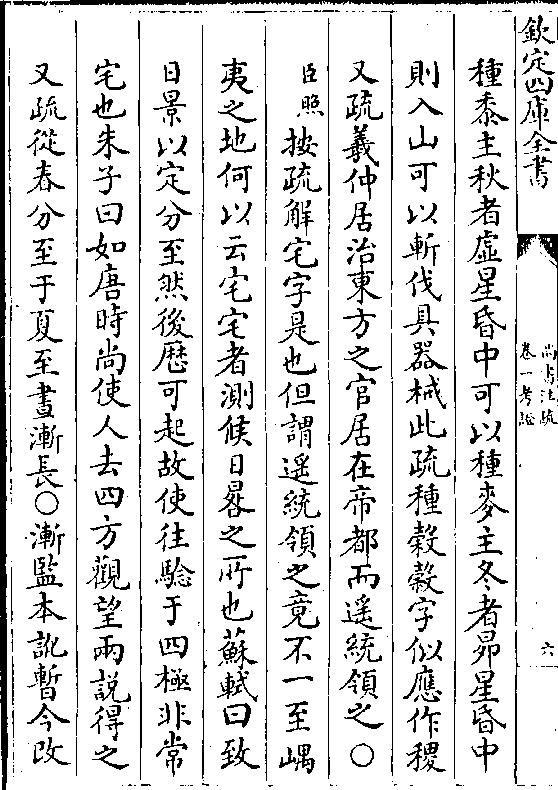 欽定四庫全書
尚書注疏
卷一考證
六
種黍主秋者虛星昏中可以種麥主冬者昴星昏中
則入山可以斬伐具器械此疏種穀穀字似應作稷
又疏羲仲居治東方之官居在帝都而遥統領之○
臣照按疏解宅字是也但謂遥統領之竟不一至嵎
夷之地何以云宅宅者測候日晷之所也蘇軾曰致
日景以定分至然後厯可起故使往驗于四極非常
宅也朱子曰如唐時尚使人去四方觀望兩說得之
又疏從春分至于夏至晝漸長○漸監本訛暫今改